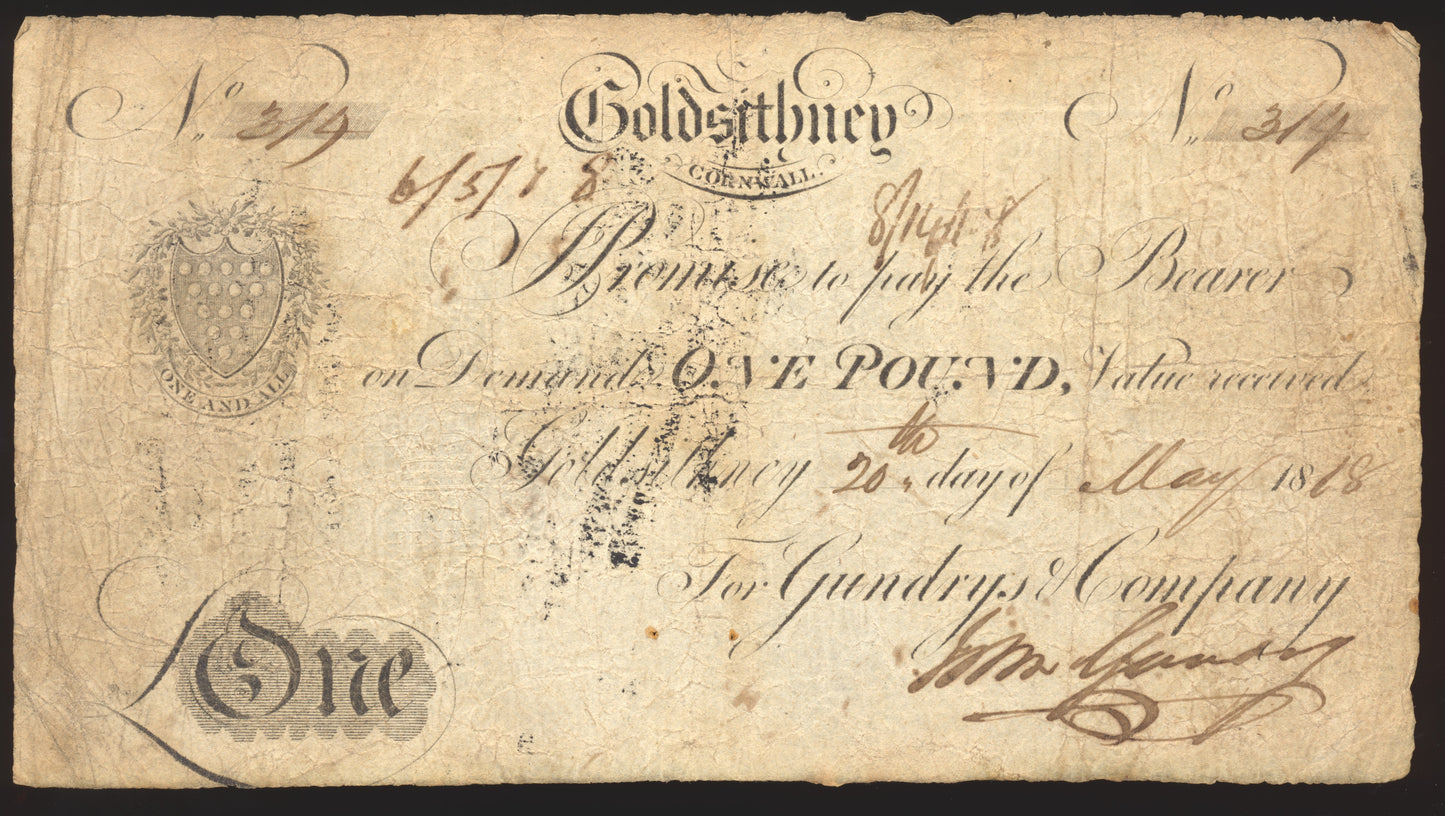 No 319
Goldsithney
No 319
CORNWALL.
6/5/18
I Promise to pay the Bearer
on Demand ONE POUND, Value received
Goldsithney 20th day of May 1818
For Gundrys & Company
John Gundry
ONE AND ALL
£ One